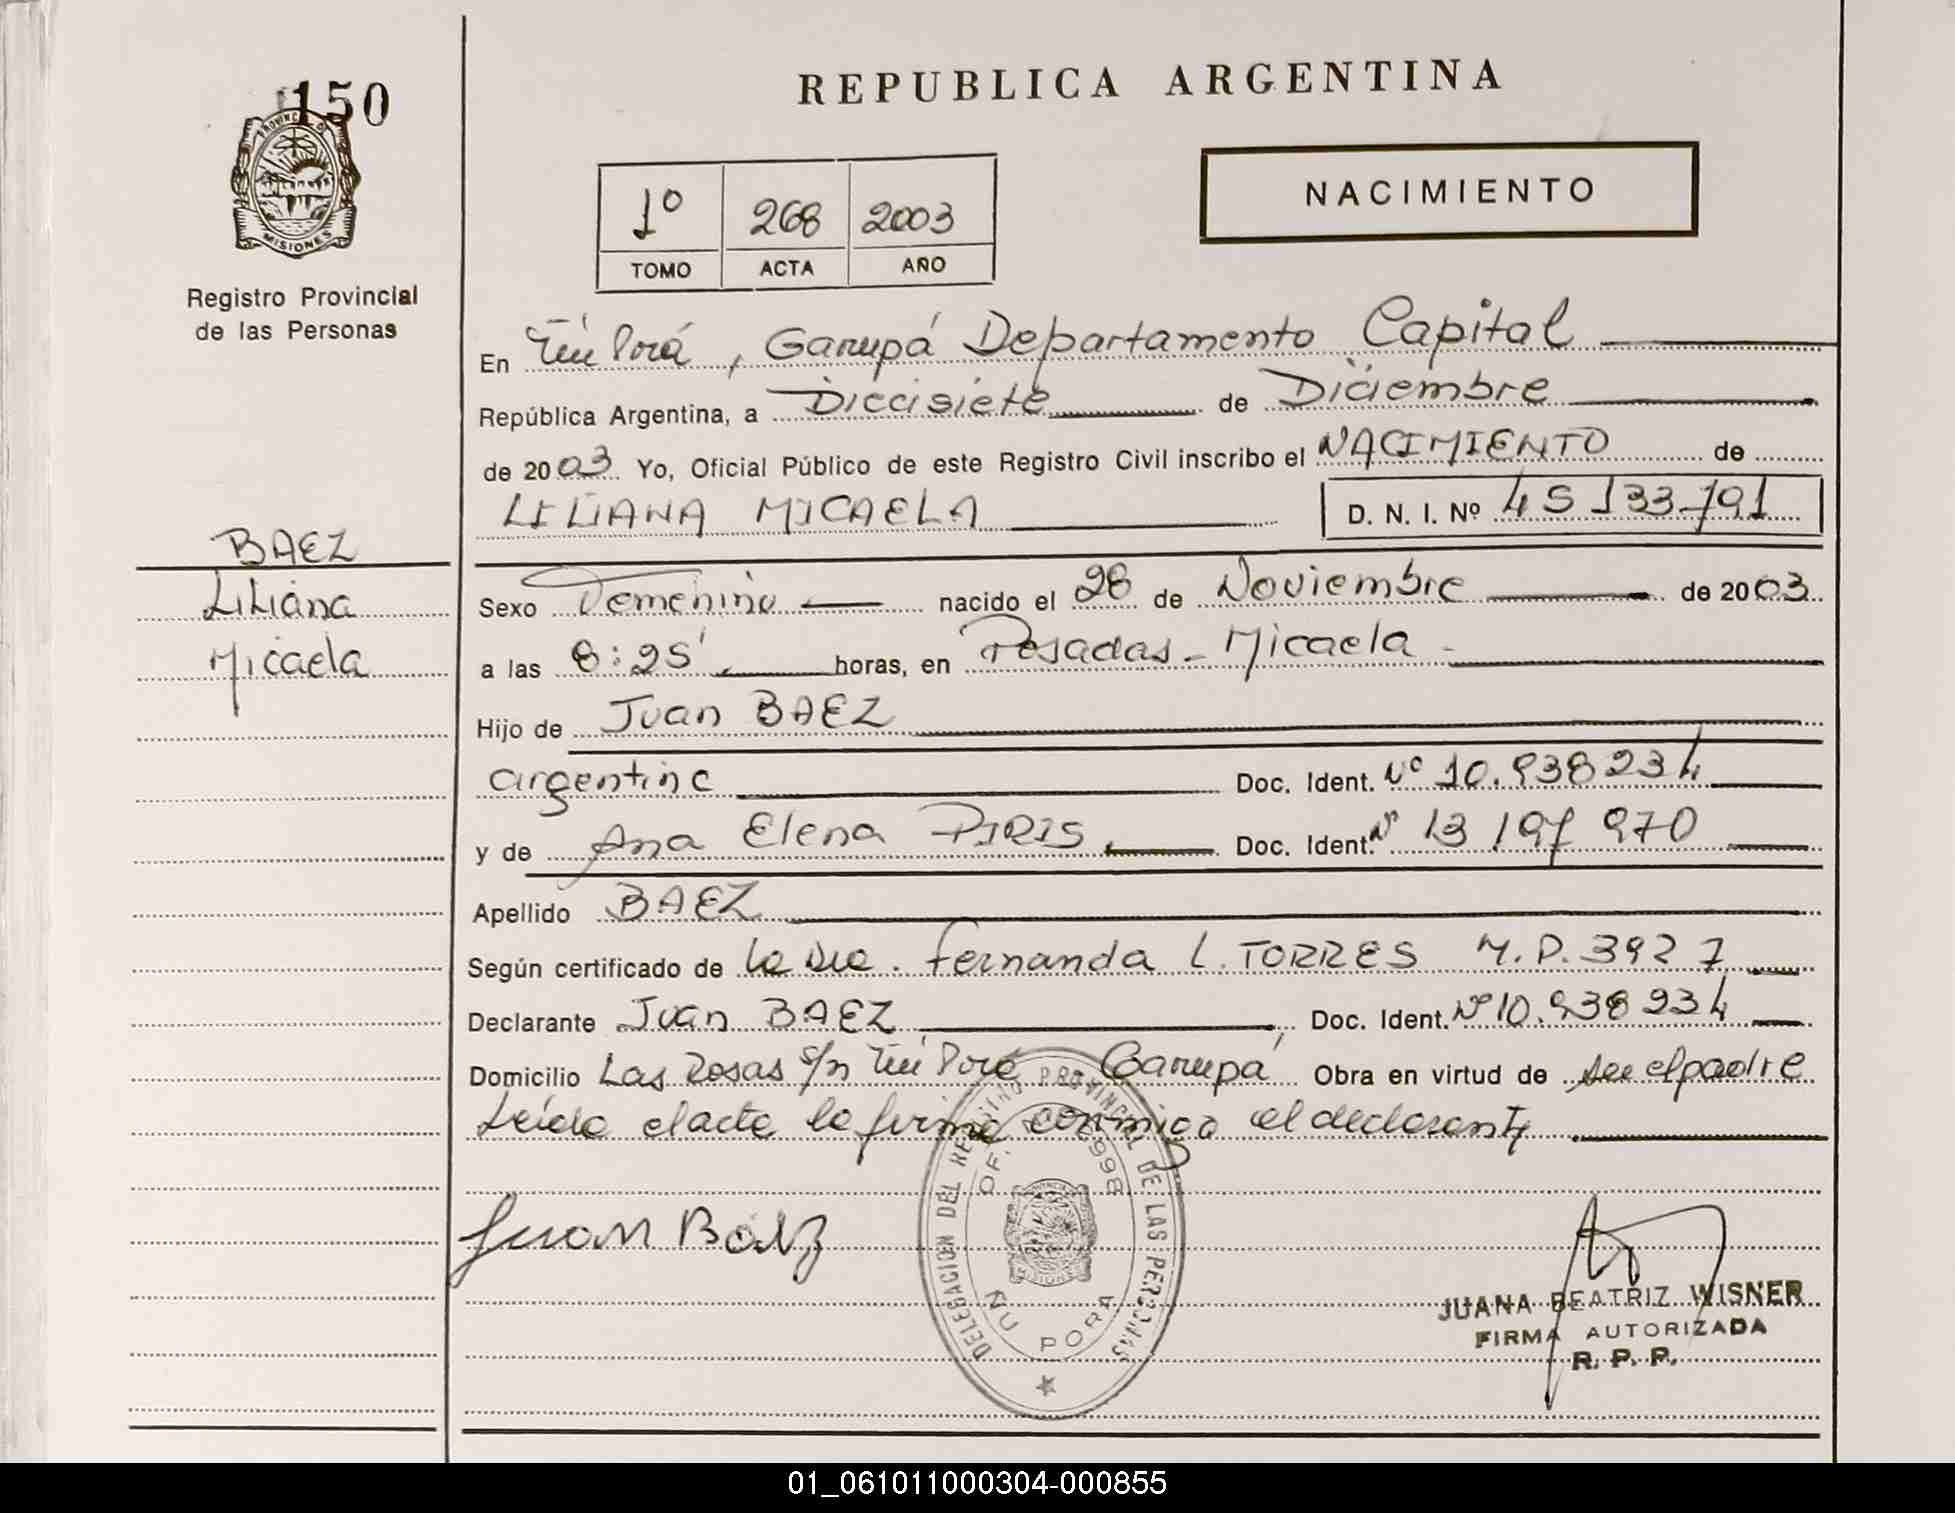 150
PROVINCIA DE
MISIONES
Registro Provincial
de las Personas
REPUBLICA ARGENTINA
1º 268 2003
TOMO ACTA AÑO
NACIMIENTO
En Ñu Porá, Garupá Departamento Capital
República Argentina, a Diecisiete de Diciembre
de 2003 Yo, Oficial Público de este Registro Civil inscribo el NACIMIENTO de
LILIANA MICAELA D. N. I. Nº 45 133 791
BAEZ
Liliana
Micaela
Sexo Femenino nacido el 28 de Noviembre de 2003
a las 8:25' horas, en Posadas - Micaela -
Hijo de Juan BAEZ
argentino Doc. Ident. Nº 10.938234
y de Ana Elena PIRIS Doc. Ident. Nº 13 197 970
Apellido BAEZ
Según certificado de la Dra. Fernanda L. TORRES M.P. 3927
Declarante Juan BAEZ Doc. Ident. Nº 10.938 234
Domicilio Las Rosas s/n Ñu Porá Garupá Obra en virtud de ser el padre
Leída el acta la firma conmigo el declarante
Juan Baez
DELEGACION DEL REGISTRO PROVINCIAL DE LAS PERSONAS
OF. 2998
MISIONES
ÑU PORA
JUANA BEATRIZ WISNER
FIRMA AUTORIZADA
R. P. P.
01_061011000304-000855